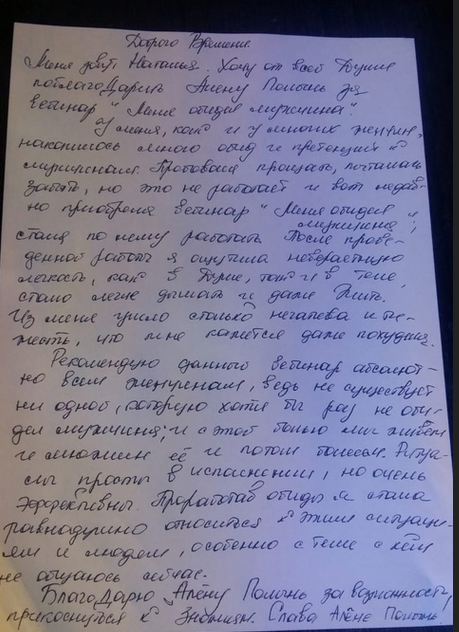 Доброго Времени.
Меня зовут Наталья. Хочу от всей Души
поблагоДарить Алену Полынь за
вебинар "Меня обидел мужчина".
У меня, как и у многих женщин,
накопилось много обид и претензий к
мужчинам. Пробовала прощать, пыталась
забыть, но это не работает и вот недав-
но приобрела вебинар "Меня обидел
мужчина",
стала по нему работать. После прове-
денной работы я ощутила невероятную
легкость, как в Душе, так и в теле,
стало легче дышать и даже жить.
Из меня ушло столько негатива и тя-
жесть, что мне кажется даже похудела.
Рекомендую данный вебинар абсолют-
но всем женщинам, ведь не существует
ни одной, которую хотя бы раз не оби-
дел мужчина, и с этой болью мы живем
и множим её и потом болеем. Ритуа-
лы просты в исполнении, но очень
эффективны. Проработав обиды я стала
равнодушно относиться к этим ситуаци-
ям и людям, особенно с теми с кем
не общаюсь сейчас.
БлагоДарю Алёну Полынь за возможность
прикоснуться к Знаниям. Слава Алёне Полынь.